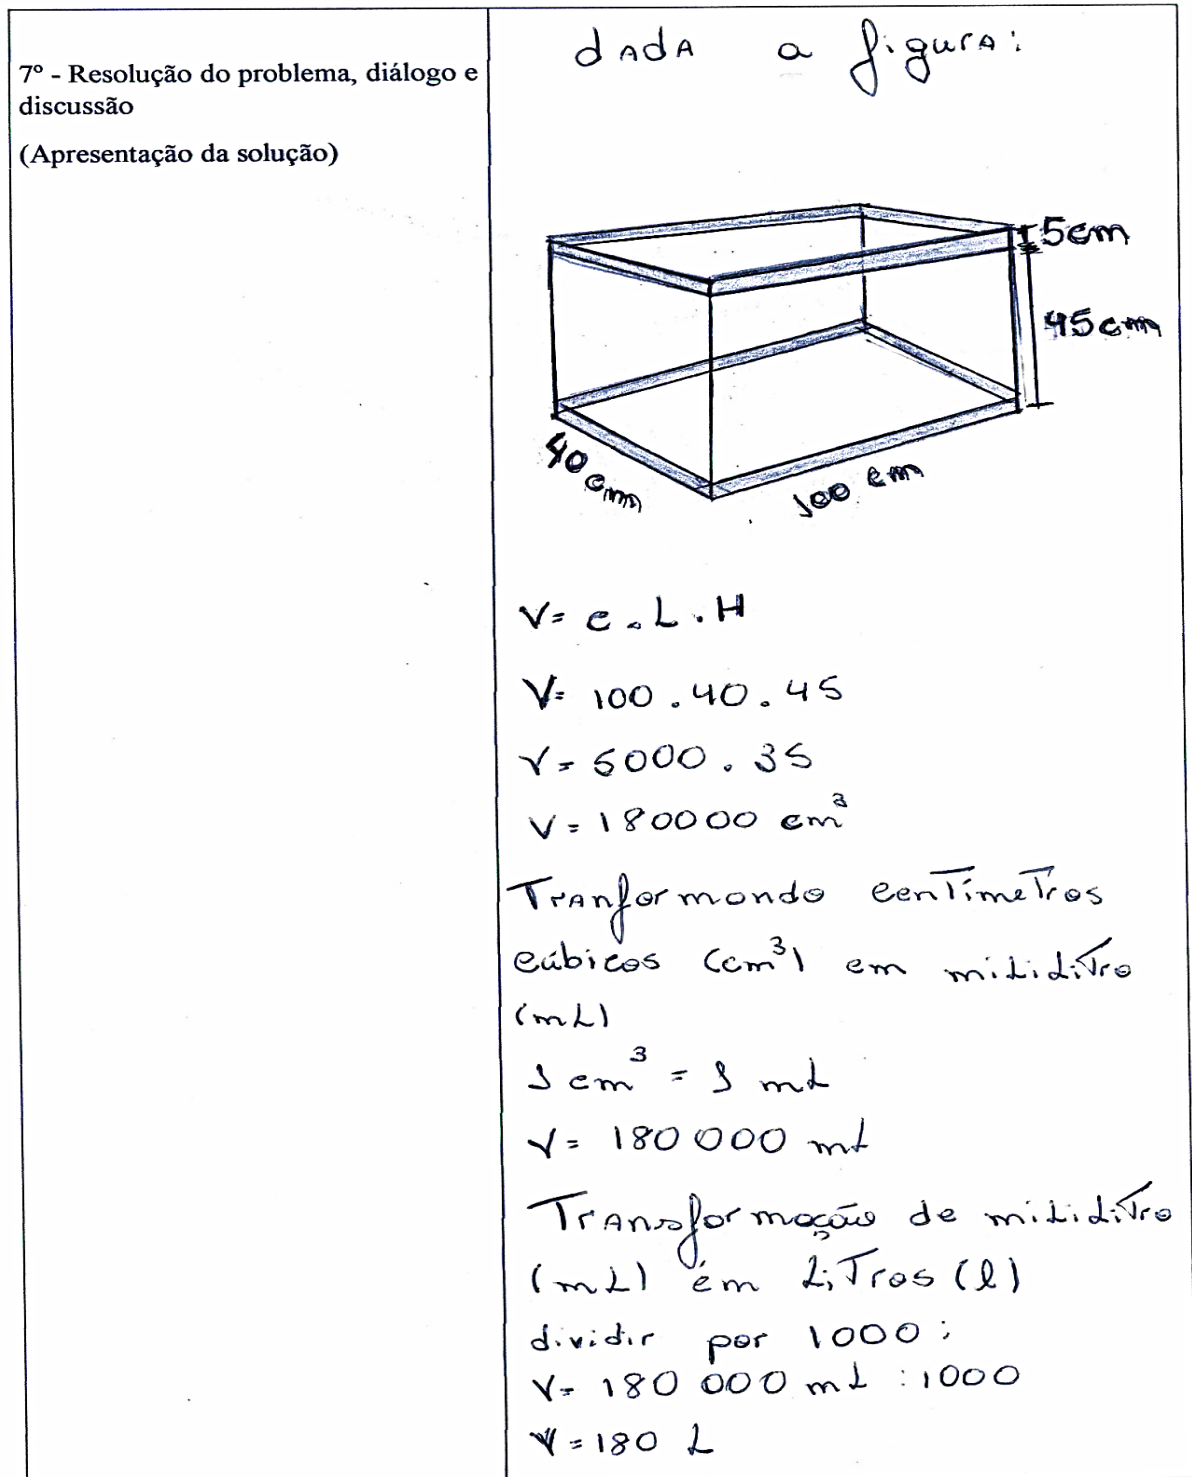 7º - Resolução do problema, diálogo e
discussão
(Apresentação da solução)
dada a figura:
5cm
45cm
40cm
100 cm
V= c.L.H
V= 100.40.45
V= 5000.35
V= 180000 cm³
Tranformondo centímetros
cúbicos (cm³) em mililitro
(mL)
1 cm³ = 1 mL
V= 180 000 mL
Transformação de mililitro
(mL) em Litros (l)
dividir por 1000;
V= 180 000 mL :1000
V=180 L